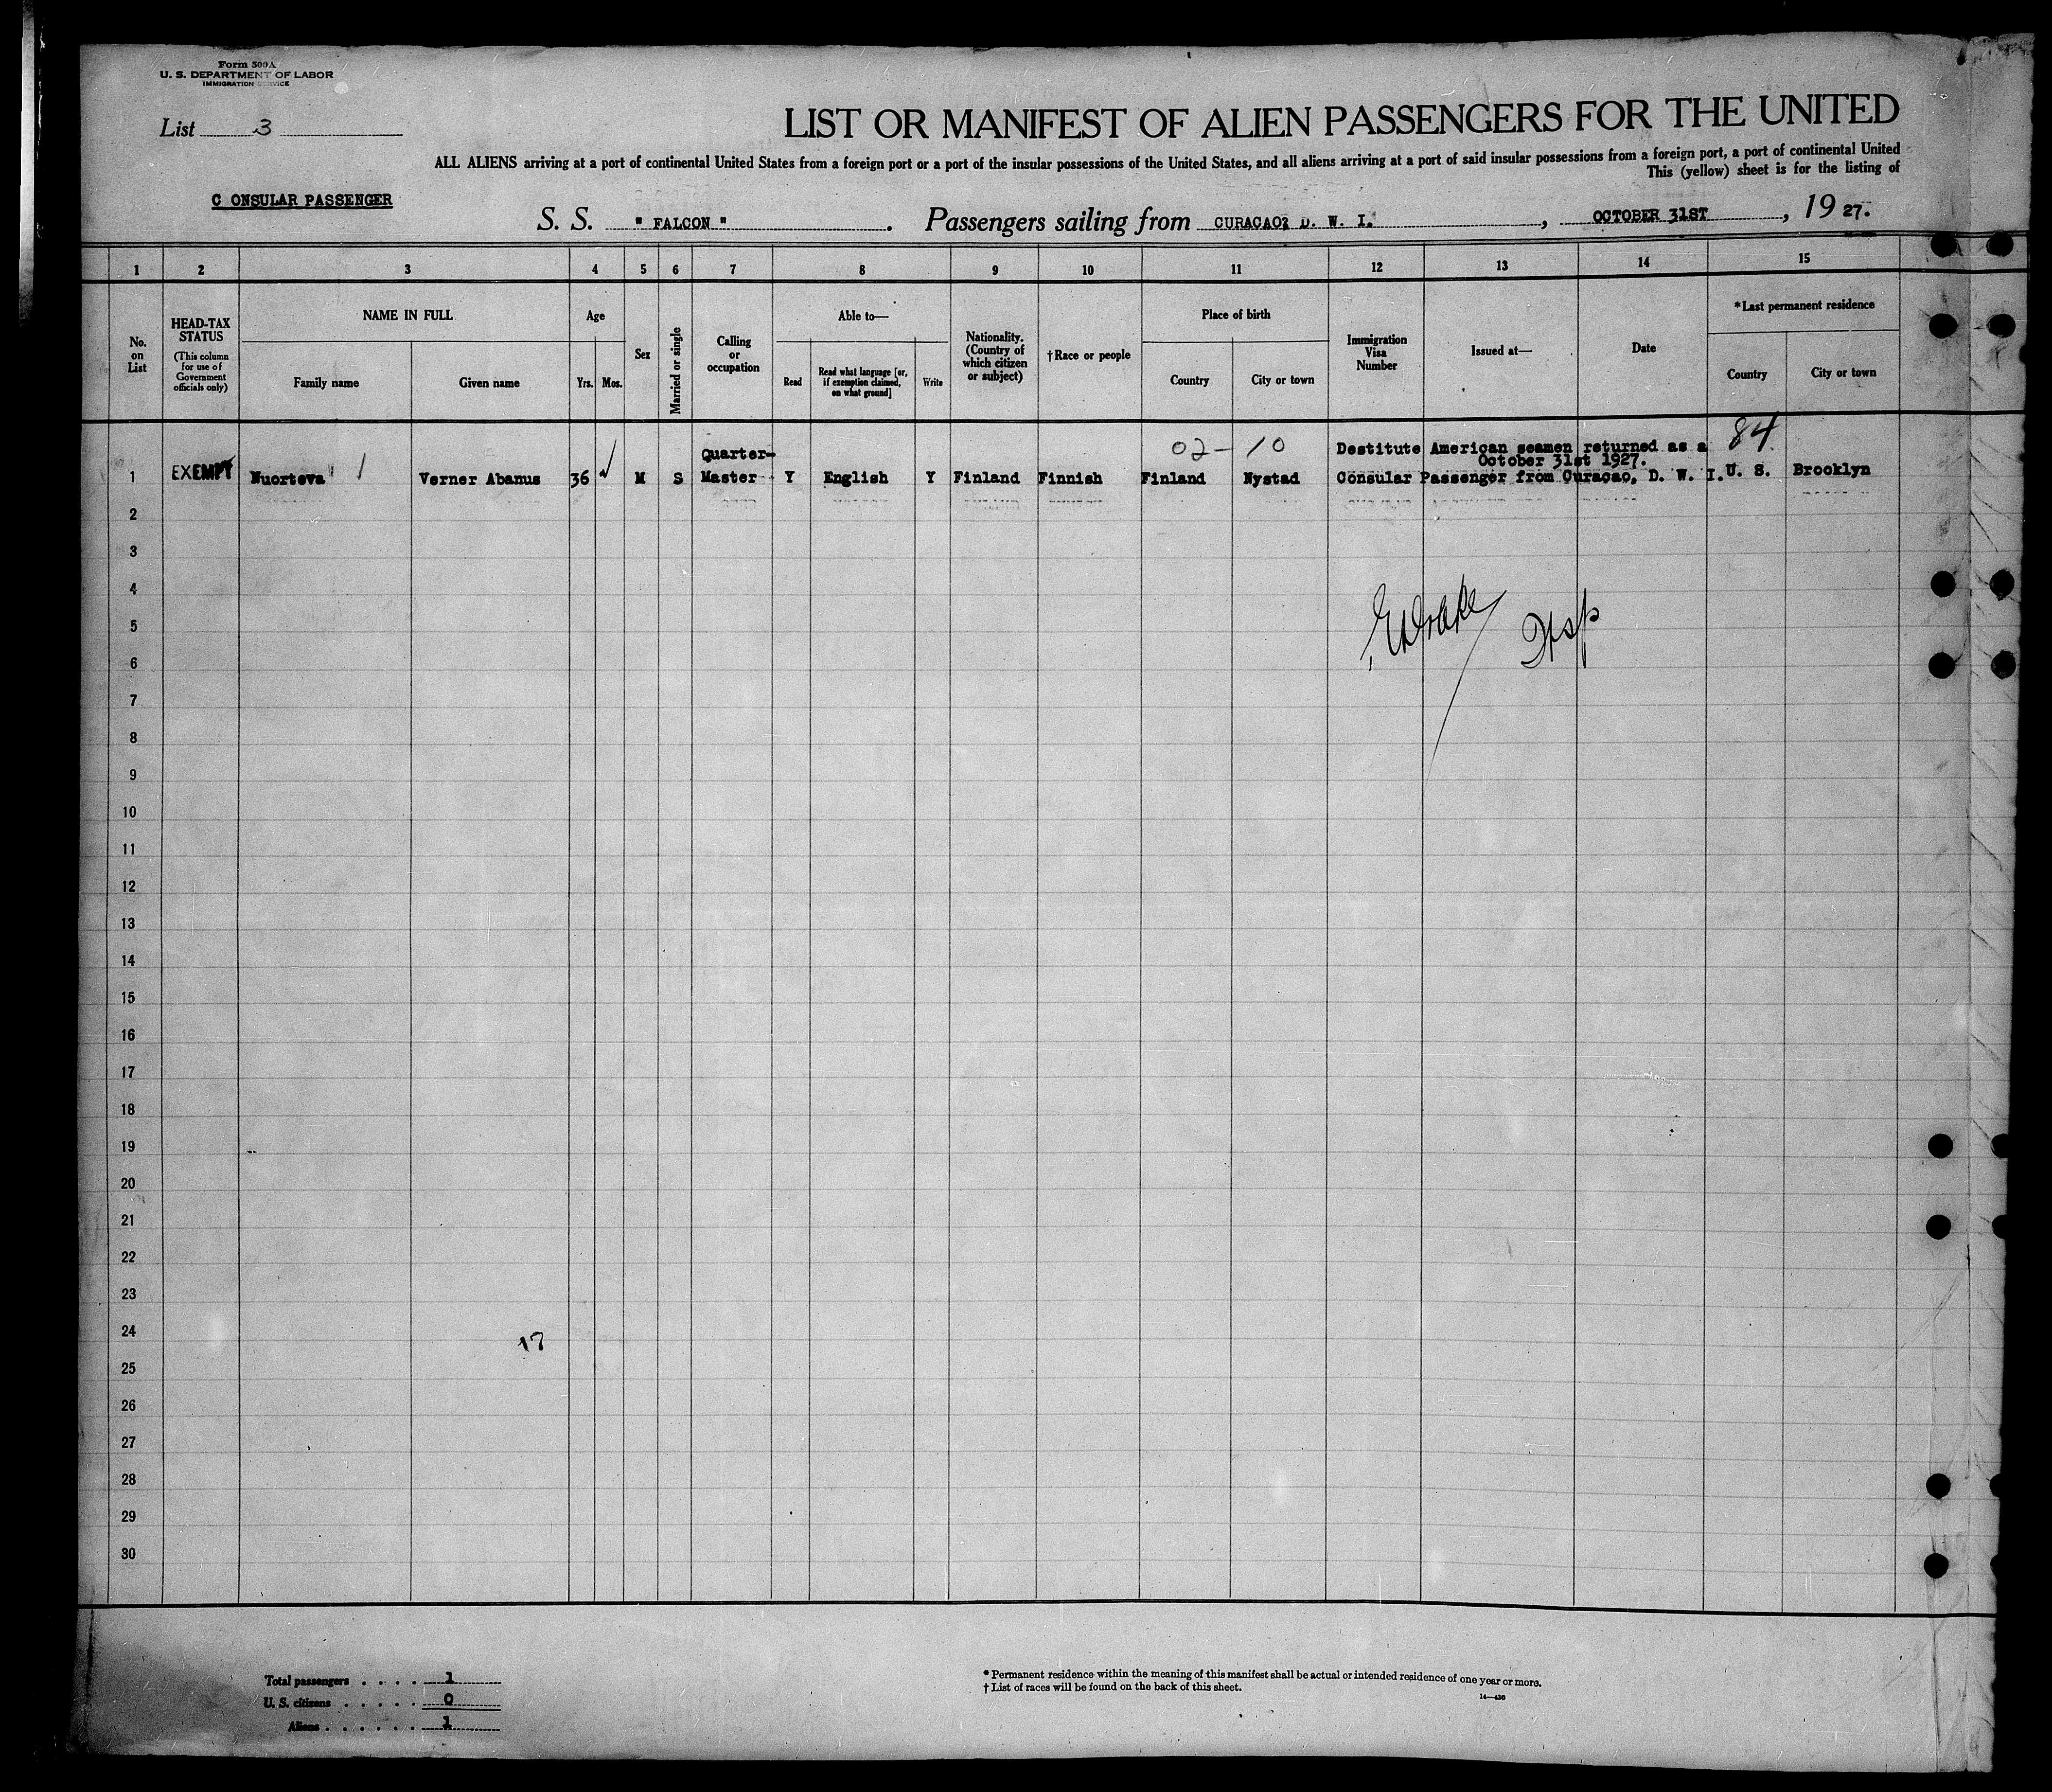 Form 500A
U. S. DEPARTMENT OF LABOR
IMMIGRATION SERVICE
List 3
LIST OR MANIFEST OF ALIEN PASSENGERS FOR THE UNITED
ALL ALIENS arriving at a port of continental United States from a foreign port or a port of the insular possessions of the United States, and all aliens arriving at a port of said insular possessions from a foreign port, a port of continental United
This (yellow) sheet is for the listing of
C ONSULAR PASSENGER
S. S. " FALCON " . Passengers sailing from CURACAO, D. W. I. , OCTOBER 31ST , 19 27.
1 2 3 4 5 6 7 8 9 10 11 12 13 14 15
No. on List
HEAD-TAX STATUS
(This column for use of Government officials only)
NAME IN FULL
Family name
Given name
Age
Yrs. Mos.
Sex
Married or single
Calling or occupation
Able to—
Read
Read what language [or, if exemption claimed, on what ground]
Write
Nationality. (Country of which citizen or subject)
†Race or people
Place of birth
Country
City or town
Immigration Visa Number
Issued at—
Date
*Last permanent residence
Country
City or town
02 - 10
84
Quarter-
Destitute American seamen returned as a
October 31st 1927.
1 EXEMPT Nuorteva 1 Verner Abanus 36 M S Master Y English Y Finland Finnish Finland Nystad Consular Passenger from Curacao, D. W. I. U. S. Brooklyn
2
3
4
5
6
7
8
9
10
11
12
13
14
15
16
17
18
19
20
21
22
23
24
17
25
26
27
28
29
30
Total passengers . . . . 1
U. S. citizens . . . . . 0
Aliens . . . . . . 1
* Permanent residence within the meaning of this manifest shall be actual or intended residence of one year or more.
† List of races will be found on the back of this sheet.
14—436